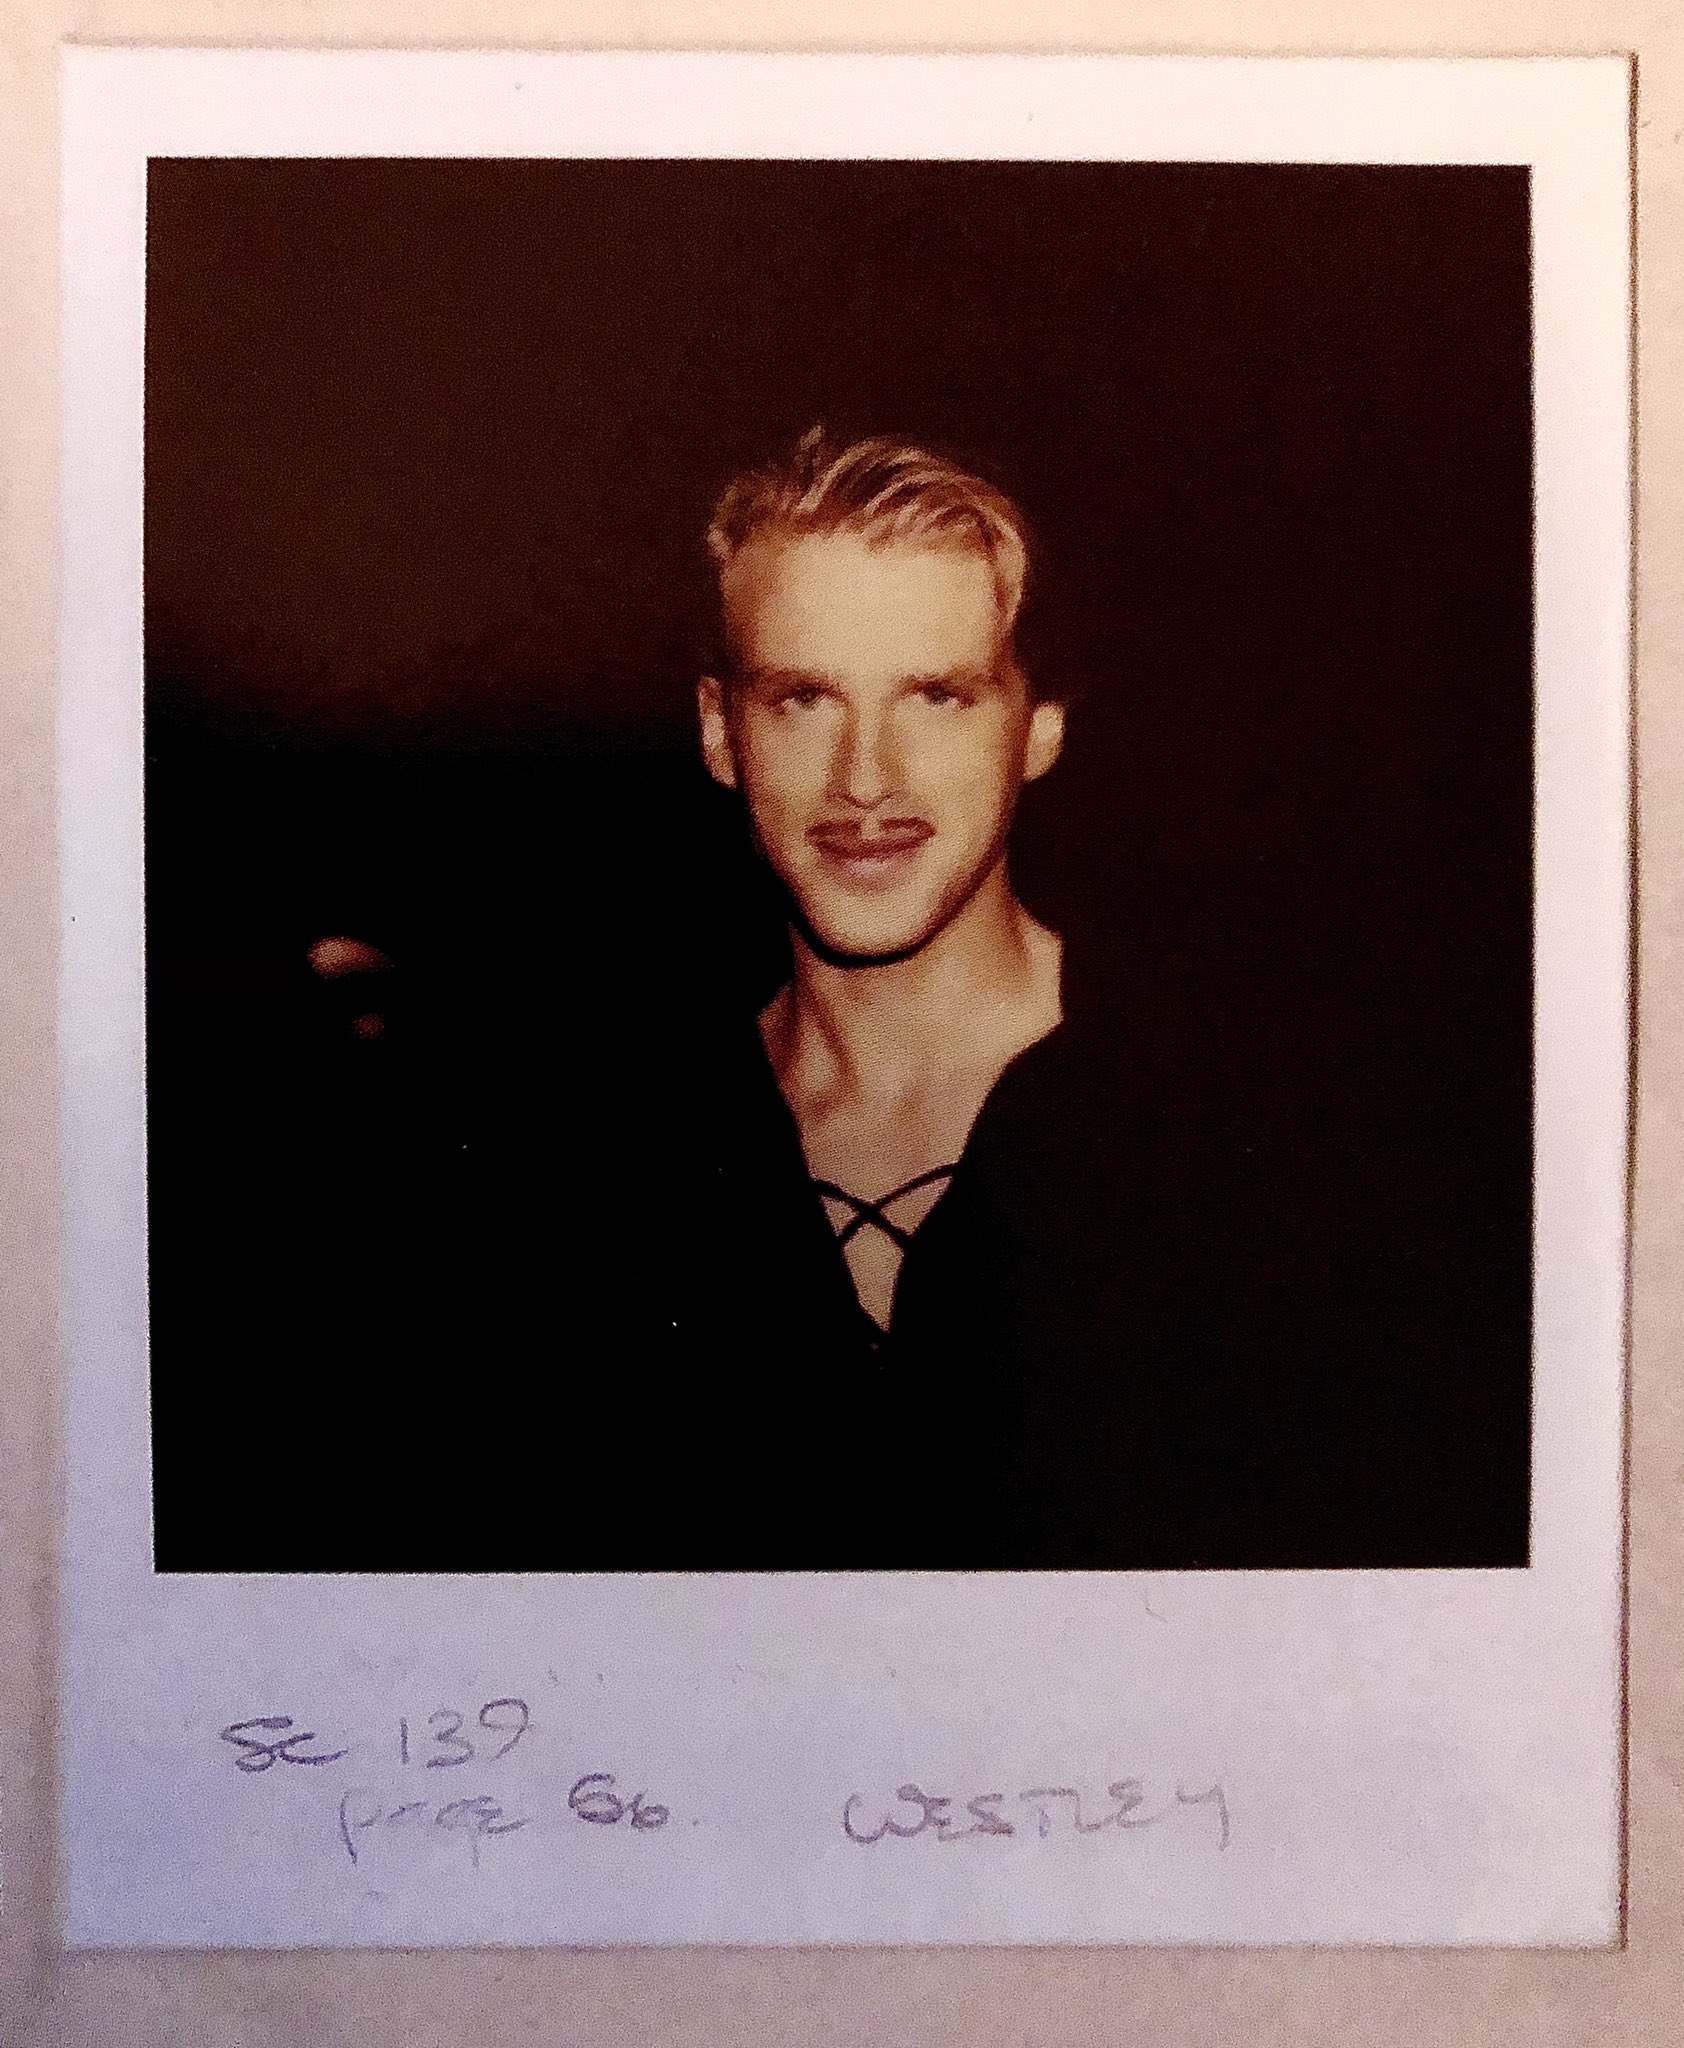 Sc 139
page 66.
WESTLEY